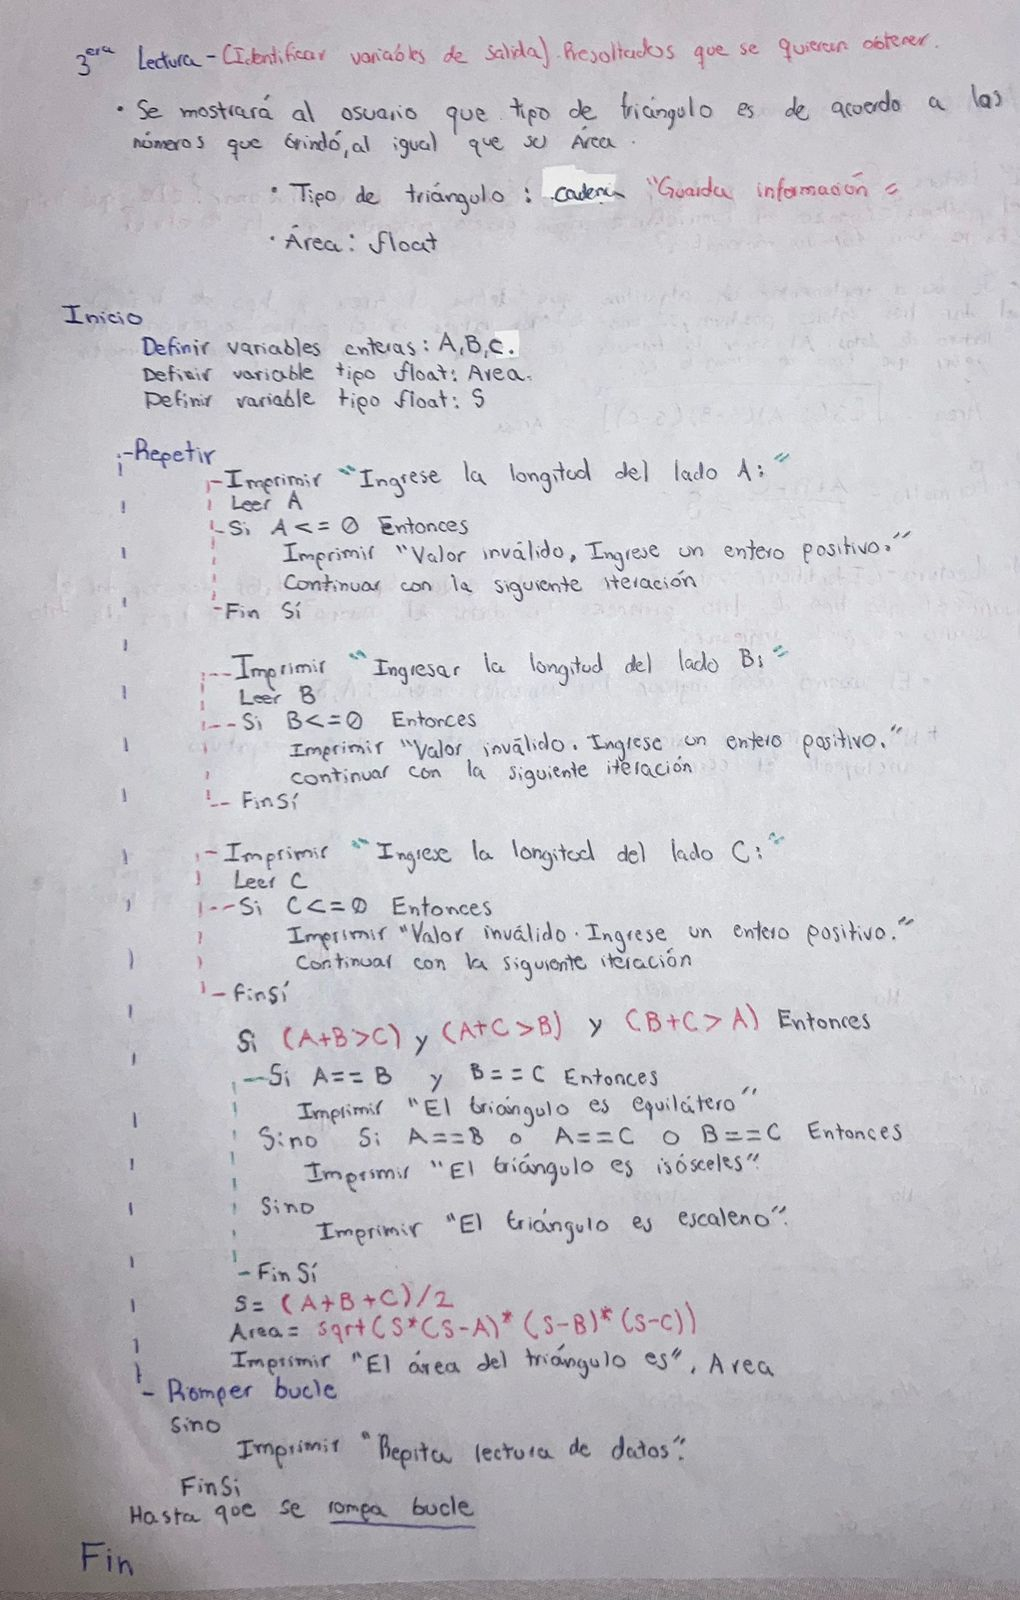 3era Lectura - (Identificar variables de salida). Resultados que se quieren obtener.
• Se mostrará al usuario que tipo de triángulo es de acuerdo a las
números que brindó, al igual que su Área.
• Tipo de triángulo : cadena "Guarda información
• Área: float
Inicio
Definir variables enteras: A,B,C.
Definir variable tipo float: Area.
Definir variable tipo float: S
-Repetir
-Imprimir "Ingrese la longitud del lado A:"
Leer A
-Si A<=0 Entonces
Imprimir "Valor inválido, Ingrese un entero positivo."
Continuar con la siguiente iteración
-Fin Sí
--Imprimir "Ingresar la longitud del lado B:"
Leer B
--Si B<=0 Entonces
Imprimir "Valor inválido. Ingrese un entero positivo."
continuar con la siguiente iteración
-- FinSí
-Imprimir "Ingrese la longitud del lado C:"
Leer C
--Si C<=0 Entonces
Imprimir "Valor inválido. Ingrese un entero positivo."
Continuar con la siguiente iteración
- FinSí
Si (A+B>C) y (A+C>B) y (B+C>A) Entonces
-Si A==B y B==C Entonces
Imprimir "El triángulo es equilátero"
Sino Si A==B o A==C o B==C Entonces
Imprimir "El triángulo es isósceles".
Sino
Imprimir "El triángulo es escaleno".
-FinSí
S= (A+B+C)/2
Area= sqrt(S*(S-A)*(S-B)*(S-C))
Imprimir "El área del triángulo es", Area
- Romper bucle
Sino
Imprimir "Repita lectura de datos".
FinSi
Hasta que se rompa bucle
Fin